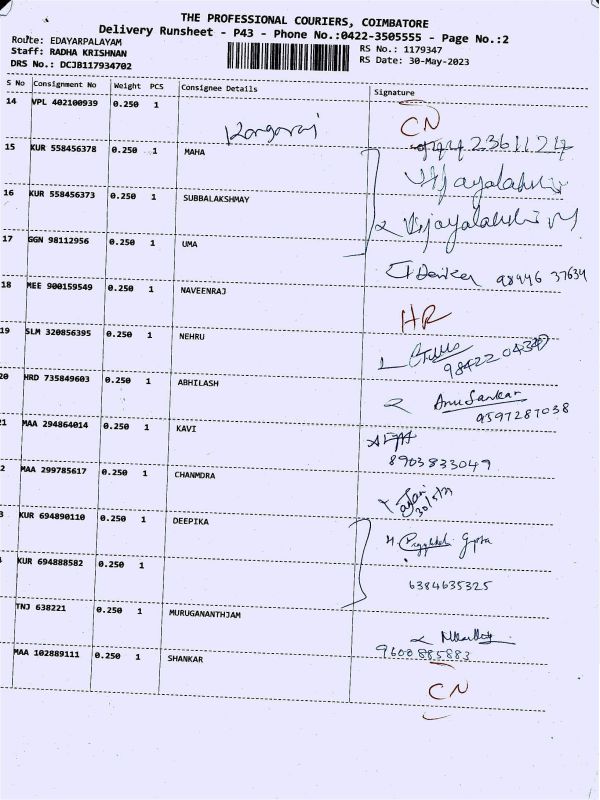 THE PROFESSIONAL COURIERS, COIMBATORE
Delivery Runsheet - P43 - Phone No.:0422-3505555 - Page No.:2
Route: EDAYARPALAYAM
Staff: RADHA KRISHNAN RS No.: 1179347
DRS No.: DCJB117934702 RS Date: 30-May-2023
S No Consignment No Weight PCS Consignee Details Signature
14 VPL 402100939 0.250 1 CN
15 KUR 558456378 0.250 1 MAHA
16 KUR 558456373 0.250 1 SUBBALAKSHMAY Vijayalakshmi
17 GGN 98112956 0.250 1 UMA 98446 37634
18 MEE 900159549 0.250 1 NAVEENRAJ HR
19 SLM 320856395 0.250 1 NEHRU
20 HRD 735849603 0.250 1 ABHILASH Anu Sankar
9597287038
21 MAA 294864014 0.250 1 KAVI
8903833049
2 MAA 299785617 0.250 1 CHANMDRA
3 KUR 694890110 0.250 1 DEEPIKA Gupta
KUR 694888582 0.250 1 6384635325
TNJ 638221 0.250 1 MURUGANANTHJAM
9600885883
MAA 102889111 0.250 1 SHANKAR CN